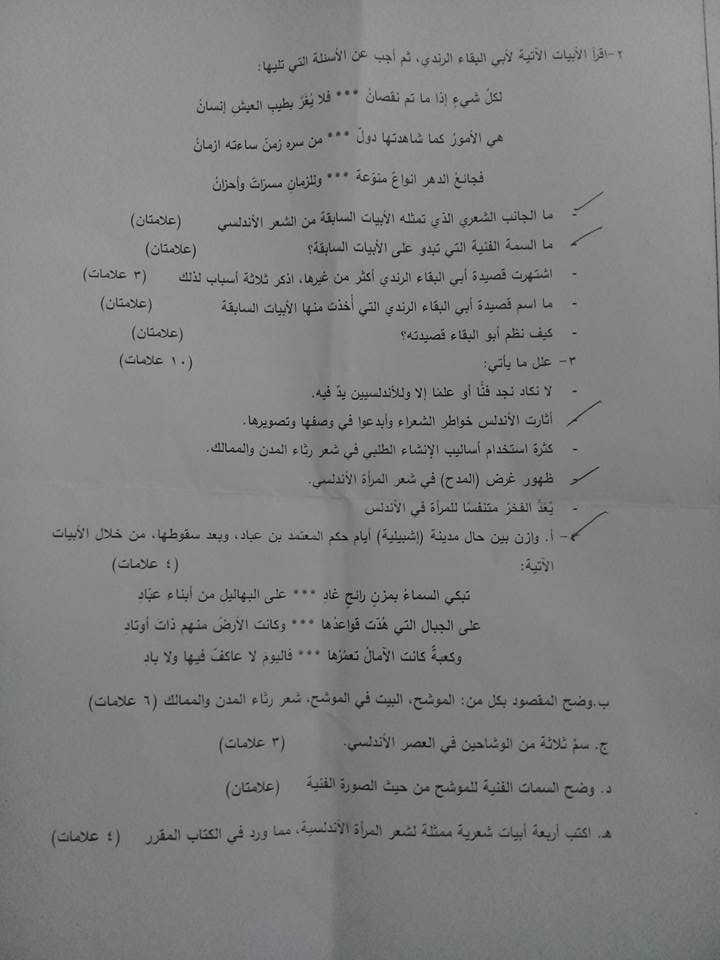 ٢-اقرأ الأبيات الآتية لأبي البقاء الرندي، ثم أجب عن الأسئلة التي تليها:
لكلّ شيءٍ إذا ما تم نقصانُ *** فلا يُغَرَّ بطيب العيشِ إنسانُ
هي الأمورُ كما شاهدتها دولٌ *** من سره زمنٌ ساءته ازمانُ
فجائعُ الدهر انواعٌ منوّعة *** وللزمانِ مسرّاتٌ وأحزانُ
- ما الجانب الشعري الذي تمثله الأبيات السابقة من الشعر الأندلسي (علامتان)
- ما السمة الفنية التي تبدو على الأبيات السابقة؟ (علامتان)
- اشتهرت قصيدة أبي البقاء الرندي أكثر من غيرها، اذكر ثلاثة أسباب لذلك (٣ علامات)
- ما اسم قصيدة أبي البقاء الرندي التي أُخذت منها الأبيات السابقة (علامتان)
- كيف نظم أبو البقاء قصيدته؟ (علامتان)
٣- علل ما يأتي: (١٠ علامات)
- لا نكاد نجد فنًّا أو علمًا إلا وللأندلسيين يدٌ فيه.
- أثارت الأندلس خواطر الشعراء وأبدعوا في وصفها وتصويرها.
- كثرة استخدام أساليب الإنشاء الطلبي في شعر رثاء المدن والممالك.
- ظهور غرض (المدح) في شعر المرأة الأندلسي.
- يُعَدُّ الفخرُ متنفسًا للمرأة في الأندلس
٤- أ. وازن بين حال مدينة (إشبيلية) أيام حكم المعتمد بن عباد، وبعد سقوطها، من خلال الأبيات
الآتية: (٤ علامات)
تبكي السماءُ بمزنٍ رائحٍ غادِ *** على البهاليل من أبناء عبّادِ
على الجبال التي هُدّت قواعدُها *** وكانت الأرضُ منهم ذاتَ أوتادِ
وكعبةٌ كانت الآمالُ تعمُرُها *** فاليومَ لا عاكفٌ فيها ولا بادِ
ب.وضح المقصود بكل من: الموشح، البيت في الموشح، شعر رثاء المدن والممالك (٦ علامات)
ج. سمّ ثلاثة من الوشاحين في العصر الأندلسي. (٣ علامات)
د. وضح السمات الفنية للموشح من حيث الصورة الفنية (علامتان)
هـ. اكتب أربعة أبيات شعرية ممثلة لشعر المرأة الأندلسية، مما ورد في الكتاب المقرر (٤ علامات)